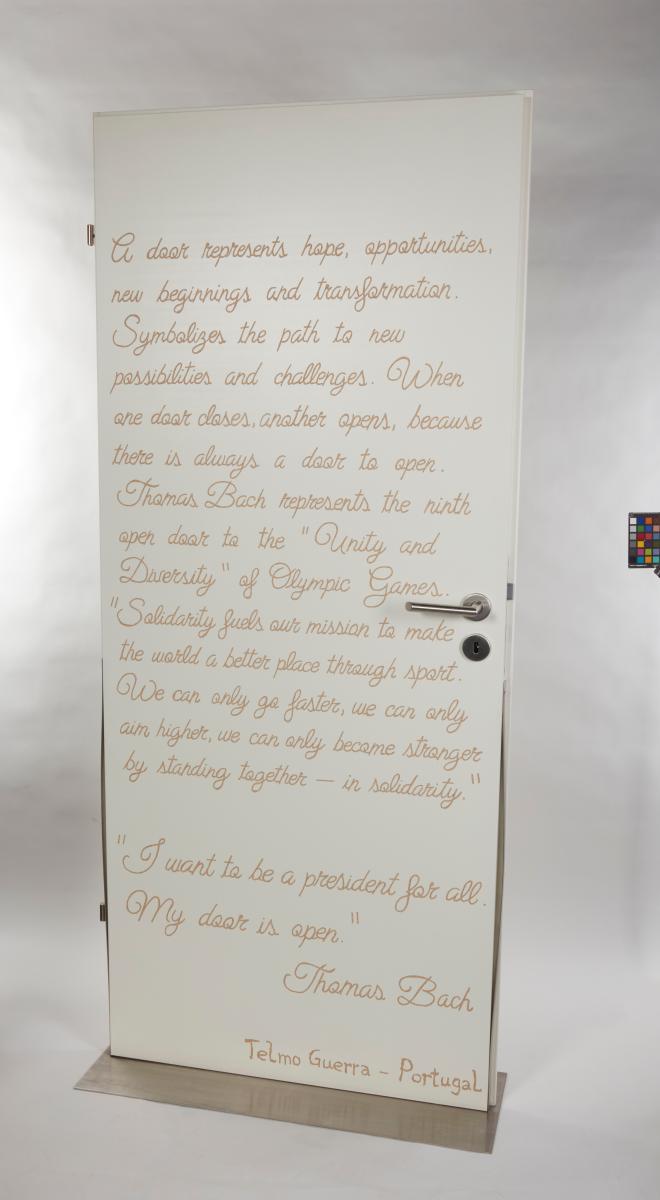 A door represents hope, opportunities,
new beginnings and transformation.
Symbolizes the path to new
possibilities and challenges. When
one door closes, another opens, because
there is always a door to open.
Thomas Bach represents the ninth
open door to the "Unity and
Diversity" of Olympic Games.
"Solidarity fuels our mission to make
the world a better place through sport.
We can only go faster, we can only
aim higher, we can only become stronger
by standing together – in solidarity."
"I want to be a president for all.
My door is open."
Thomas Bach
Telmo Guerra - Portugal